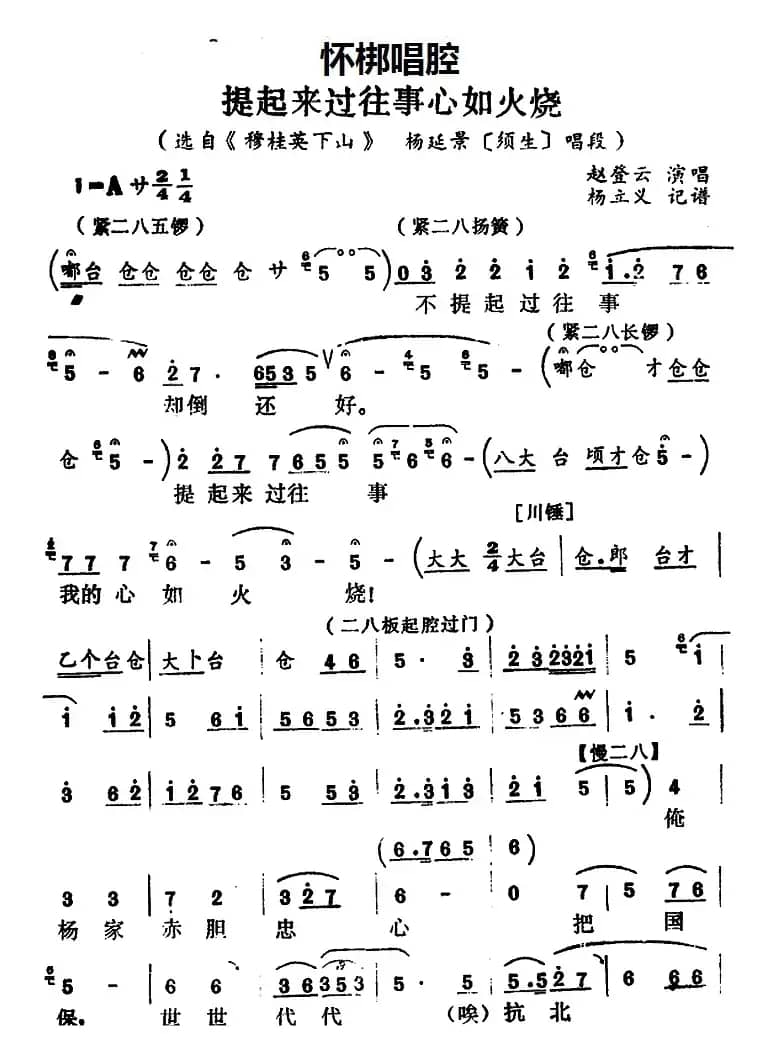 怀梆唱腔
提起来过往事心如火烧
（选自《穆桂英下山》 杨延景〔须生〕唱段）
1=A サ 2/4 1/4 赵登云 演唱
杨立义 记谱
（紧二八五锣） （紧二八扬簧）
(嘟台 仓仓 仓仓 仓 サ 5 5) 0 3 2 2 1 2 1.2 7 6
不提起过往 事
（紧二八长锣）
5 - 6 2 7· 6535 6 - 5 - (嘟仓 才仓仓
却倒 还 好。
仓 5 -) 2 2 7 7 7 6 5 5 5 6 - (八大 台 顷才仓 5 -)
提 起来 过往 事
[川锤]
7 7 7 6 - 5 3 - 5 - (大大 2/4 大台 | 仓.郎 台才
我的 心 如 火 烧!
（二八板起腔过门）
乙个台仓 | 大卜台 | 仓 4 6 | 5 · 3 | 2 3 2321 | 5 1
1 1 2 | 5 6 1 | 5 6 5 3 | 2.3 2 1 | 5 3 6 6 | 1 · 2
【慢二八】
3 6 2 | 1 2 7 6 | 5 5 3 | 2.3 1 3 | 2 1 5 | 5) 4
俺
(6.7 6 5 | 6)
3 3 | 7 2 | 3 2 7 | 6 - | 0 7 | 5 7 6
杨 家 赤 胆 忠 心 把 国
5 - | 6 6 | 3 6 3 5 3 | 5· 5 | 5.5 2 7 | 6 6 6
保。 世世 代代 （唉）抗 北